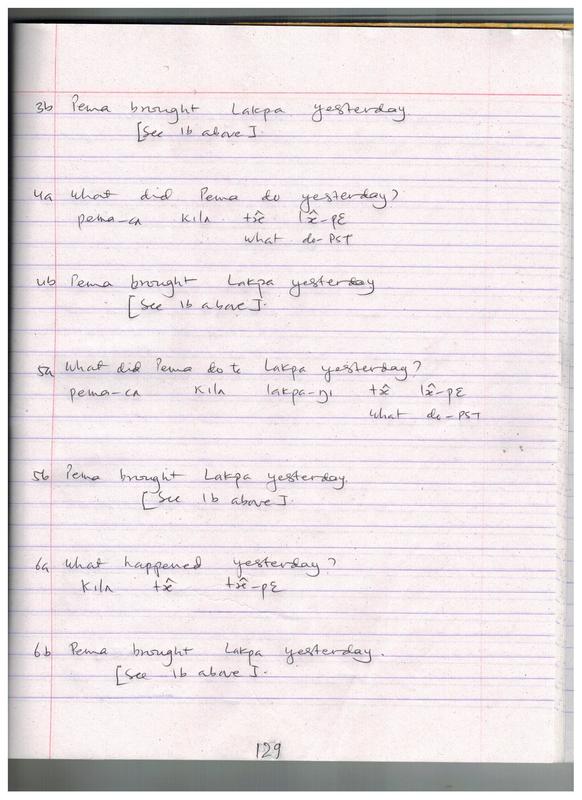 3b Pema brought Lakpa yesterday.
[See 1b above].
4a What did Pema do yesterday?
pema-cʌ kilʌ tæ̂ læ̂-pɛ
what do-PST
4b Pema brought Lakpa yesterday
[See 1b above].
5a What did Pema do to Lakpa yesterday?
pema-cʌ kilʌ lakpa-ŋi tæ̂ læ̂-pɛ
what do-PST
5b Pema brought Lakpa yesterday.
[See 1b above].
6a What happened yesterday?
kilʌ tæ̂ tæ̂-pɛ
6b Pema brought Lakpa yesterday.
[See 1b above].
129